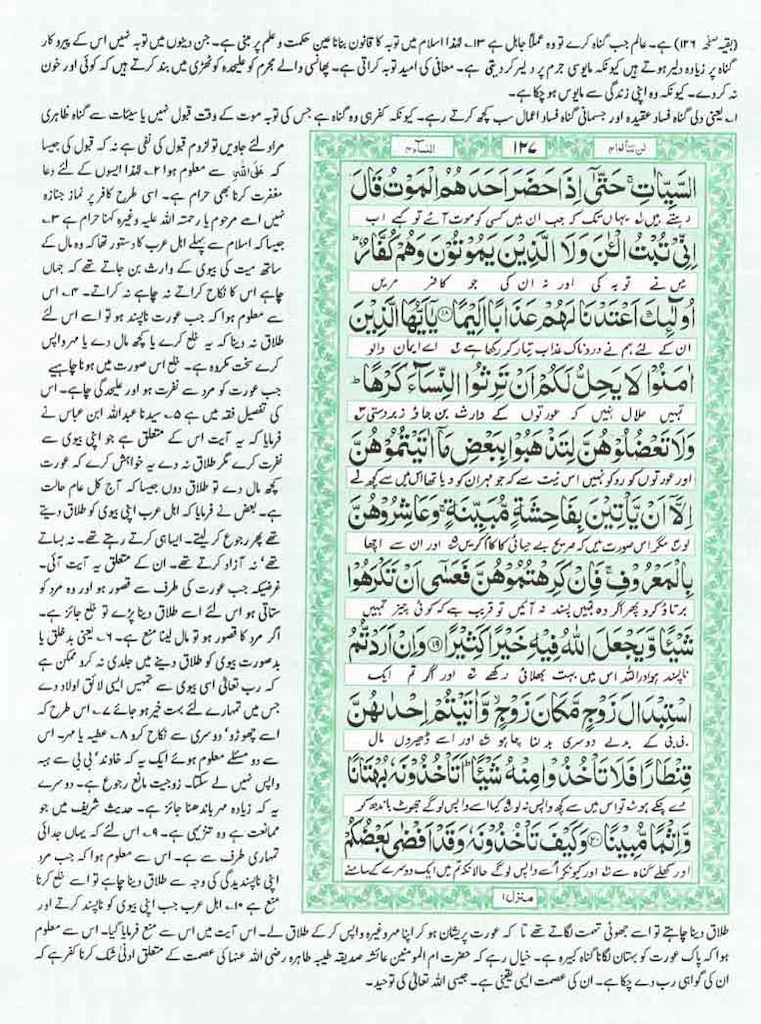 (بقیہ صفحہ ۱۲۶) ہے۔ عالم جب گناہ کرے تو وہ عملاً جاہل ہے ۱۳۔ لہٰذا اسلام میں توبہ کا قانون بنانا عین حکمت و علم پر مبنی ہے۔ جن دینوں میں توبہ نہیں اس کے پیروکار
گناہ پر زیادہ دلیر ہوتے ہیں کیونکہ مایوسی جرم پر دلیر کر دیتی ہے۔ معافی کی امید توبہ کراتی ہے۔ پھانسی والے مجرم کو علیحدہ کوٹھڑی میں بند کرتے ہیں کہ کوئی اور خون
نہ کر دے۔ کیونکہ وہ اپنی زندگی سے مایوس ہو چکا ہے۔
۱۔ یعنی دلی گناہ فساد عقیدہ اور جسمانی گناہ فساد اعمال سب کچھ کرتے رہے۔ کیونکہ کفر ہی وہ گناہ ہے جس کی توبہ موت کے وقت قبول نہیں یا سیئات سے گناہ ظاہری
لن تنالوا ۴
۱۲۷
النسآء ۴
السَّيِّاٰتِ ۚ حَتّٰۤى اِذَا حَضَرَ اَحَدَهُمُ الْمَوْتُ قَالَ
رہتے ہیں یہاں تک کہ جب ان میں کسی کو موت آئے تو کہے اب
اِنِّىْ تُبْتُ الْـٰٔنَ وَلَا الَّذِيْنَ يَمُوْتُوْنَ وَهُمْ كُفَّارٌ ؕ
میں نے توبہ کی اور نہ ان کی جو کافر مریں
اُولٰٓئِكَ اَعْتَدْنَا لَهُمْ عَذَابًا اَلِيْمًا ۱۸ يٰۤاَيُّهَا الَّذِيْنَ
ان کے لئے ہم نے دردناک عذاب تیار کر رکھا ہے ۲ اے ایمان والو
اٰمَنُوْا لَا يَحِلُّ لَكُمْ اَنْ تَرِثُوا النِّسَآءَ كَرْهًا ؕ
تمہیں حلال نہیں کہ عورتوں کے وارث بن جاؤ زبردستی
وَلَا تَعْضُلُوْهُنَّ لِتَذْهَبُوْا بِبَعْضِ مَاۤ اٰتَيْتُمُوْهُنَّ
اور عورتوں کو روکو نہیں اس نیت سے کہ جو مہر ان کو دیا تھا اس میں سے کچھ لے
اِلَّاۤ اَنْ يَّاْتِيْنَ بِفَاحِشَةٍ مُّبَيِّنَةٍ ۚ وَعَاشِرُوْهُنَّ
لو مگر اس صورت میں کہ صریح بے حیائی کا کام کریں ۵ اور ان سے اچھا
بِالْمَعْرُوْفِ ۚ فَاِنْ كَرِهْتُمُوْهُنَّ فَعَسٰۤى اَنْ تَكْرَهُوْا
برتاؤ کرو پھر اگر وہ تمہیں پسند نہ آئیں تو قریب ہے کہ کوئی چیز تمہیں
شَيْـًٔا وَّيَجْعَلَ اللّٰهُ فِيْهِ خَيْرًا كَثِيْرًا ۱۹ وَاِنْ اَرَدْتُّمُ
ناپسند ہو اور اللہ اس میں بہت بھلائی رکھے ۶ اور اگر تم ایک
اسْتِبْدَالَ زَوْجٍ مَّكَانَ زَوْجٍ ۙ وَّاٰتَيْتُمْ اِحْدٰىهُنَّ
بی بی کے بدلے دوسری بدلنا چاہو ۷ اور اسے ڈھیروں مال
قِنْطَارًا فَلَا تَاْخُذُوْا مِنْهُ شَيْـًٔا ؕ اَتَاْخُذُوْنَهٗ بُهْتَانًا
دے چکے ہو تو اس میں سے کچھ واپس نہ لو کیا اسے واپس لو گے جھوٹ باندھ کر
وَّاِثْمًا مُّبِيْنًا ۲۰ وَكَيْفَ تَاْخُذُوْنَهٗ وَقَدْ اَفْضٰى بَعْضُكُمْ
اور کھلے گناہ سے اور کیونکر اسے واپس لو گے حالانکہ تم میں ایک دوسرے کے سامنے
منزل ۱
مراد لئے جاویں تو لزوم قبول کی نفی ہے نہ کہ قبول کی جیسا
کہ عَلَی اللّٰہِ سے معلوم ہوا ۲۔ لہٰذا ایسوں کے لئے دعا
مغفرت کرنا بھی حرام ہے۔ اسی طرح کافر پر نماز جنازہ
نہیں اسے مرحوم یا رحمتہ اللہ علیہ وغیرہ کہنا حرام ہے ۳۔
جیسا کہ اسلام سے پہلے اہل عرب کا دستور تھا کہ وہ مال کے
ساتھ میت کی بیوی کے وارث بن جاتے تھے کہ جہاں
چاہے اس کا نکاح کراتے نہ چاہے نہ کراتے۔ ۴۔ اس
سے معلوم ہوا کہ جب عورت ناپسند ہو تو اسے اس لئے
طلاق نہ دینا کہ یہ خلع کرے یا کچھ مال دے یا مہر واپس
کرے سخت مکروہ ہے۔ خلع اس صورت میں ہونا چاہیے
جب عورت کو مرد سے نفرت ہو اور علیحدگی چاہے۔ اس
کی تفصیل فقہ میں ہے ۵۔ سیدنا عبداللہ ابن عباس نے
فرمایا کہ یہ آیت اس کے متعلق ہے جو اپنی بیوی سے
نفرت کرے مگر طلاق نہ دے یہ خواہش کرے کہ عورت
کچھ مال دے تو طلاق دوں جیسا کہ آج کل عام حالت
ہے۔ بعض نے فرمایا کہ اہل عرب اپنی بیوی کو طلاق دیتے
تھے پھر رجوع کر لیتے۔ ایسا ہی کرتے رہتے تھے۔ نہ بساتے
تھے' نہ آزاد کرتے تھے۔ ان کے متعلق یہ آیت آئی۔
غرضیکہ جب عورت کی طرف سے قصور ہو اور وہ مرد کو
ستاتی ہو اس لئے اسے طلاق دینا پڑے تو خلع جائز ہے۔
اگر مرد کا قصور ہو تو مال لینا منع ہے۔ ۶۔ یعنی بدخلق یا
بدصورت بیوی کو طلاق دینے میں جلدی نہ کرو ممکن ہے
کہ رب تعالیٰ اسی بیوی سے تمہیں ایسی لائق اولاد دے
جس میں تمہارے لئے بہت خیر ہو جائے ۷۔ اس طرح کہ
اسے چھوڑو' دوسری سے نکاح کرو ۸۔ عطیہ یا مہر۔ اس
سے دو مسئلے معلوم ہوئے ایک یہ کہ خاوند' بی بی سے ہبہ
واپس نہیں لے سکتا۔ زوجیت مانع رجوع ہے۔ دوسرے
یہ کہ زیادہ مہر باندھنا جائز ہے۔ حدیث شریف میں جو
ممانعت ہے وہ تنزیہی ہے۔ ۹۔ اس لئے کہ یہاں جدائی
تمہاری طرف سے ہے۔ اس سے معلوم ہوا کہ جب مرد
اپنی ناپسندیدگی کی وجہ سے طلاق دینا چاہے تو اسے خلع کرنا
منع ہے ۱۰۔ اہل عرب جب اپنی بیوی کو ناپسند کرتے اور
طلاق دینا چاہتے تو اسے جھوٹی تہمت لگاتے تھے تا کہ عورت پریشان ہو کر اپنا مہر وغیرہ واپس کر کے طلاق لے۔ اس آیت میں اس سے منع فرمایا گیا۔ اس سے معلوم
ہوا کہ پاک عورت کو بہتان لگانا گناہ کبیرہ ہے۔ خیال رہے کہ حضرت ام المومنین عائشہ صدیقہ طیبہ طاہرہ رضی اللہ عنہا کی عصمت کے متعلق ادنیٰ شک کرنا کفر ہے کہ
ان کی گواہی رب دے چکا ہے۔ ان کی عصمت ایسی یقینی ہے۔ جیسی اللہ تعالیٰ کی توحید۔